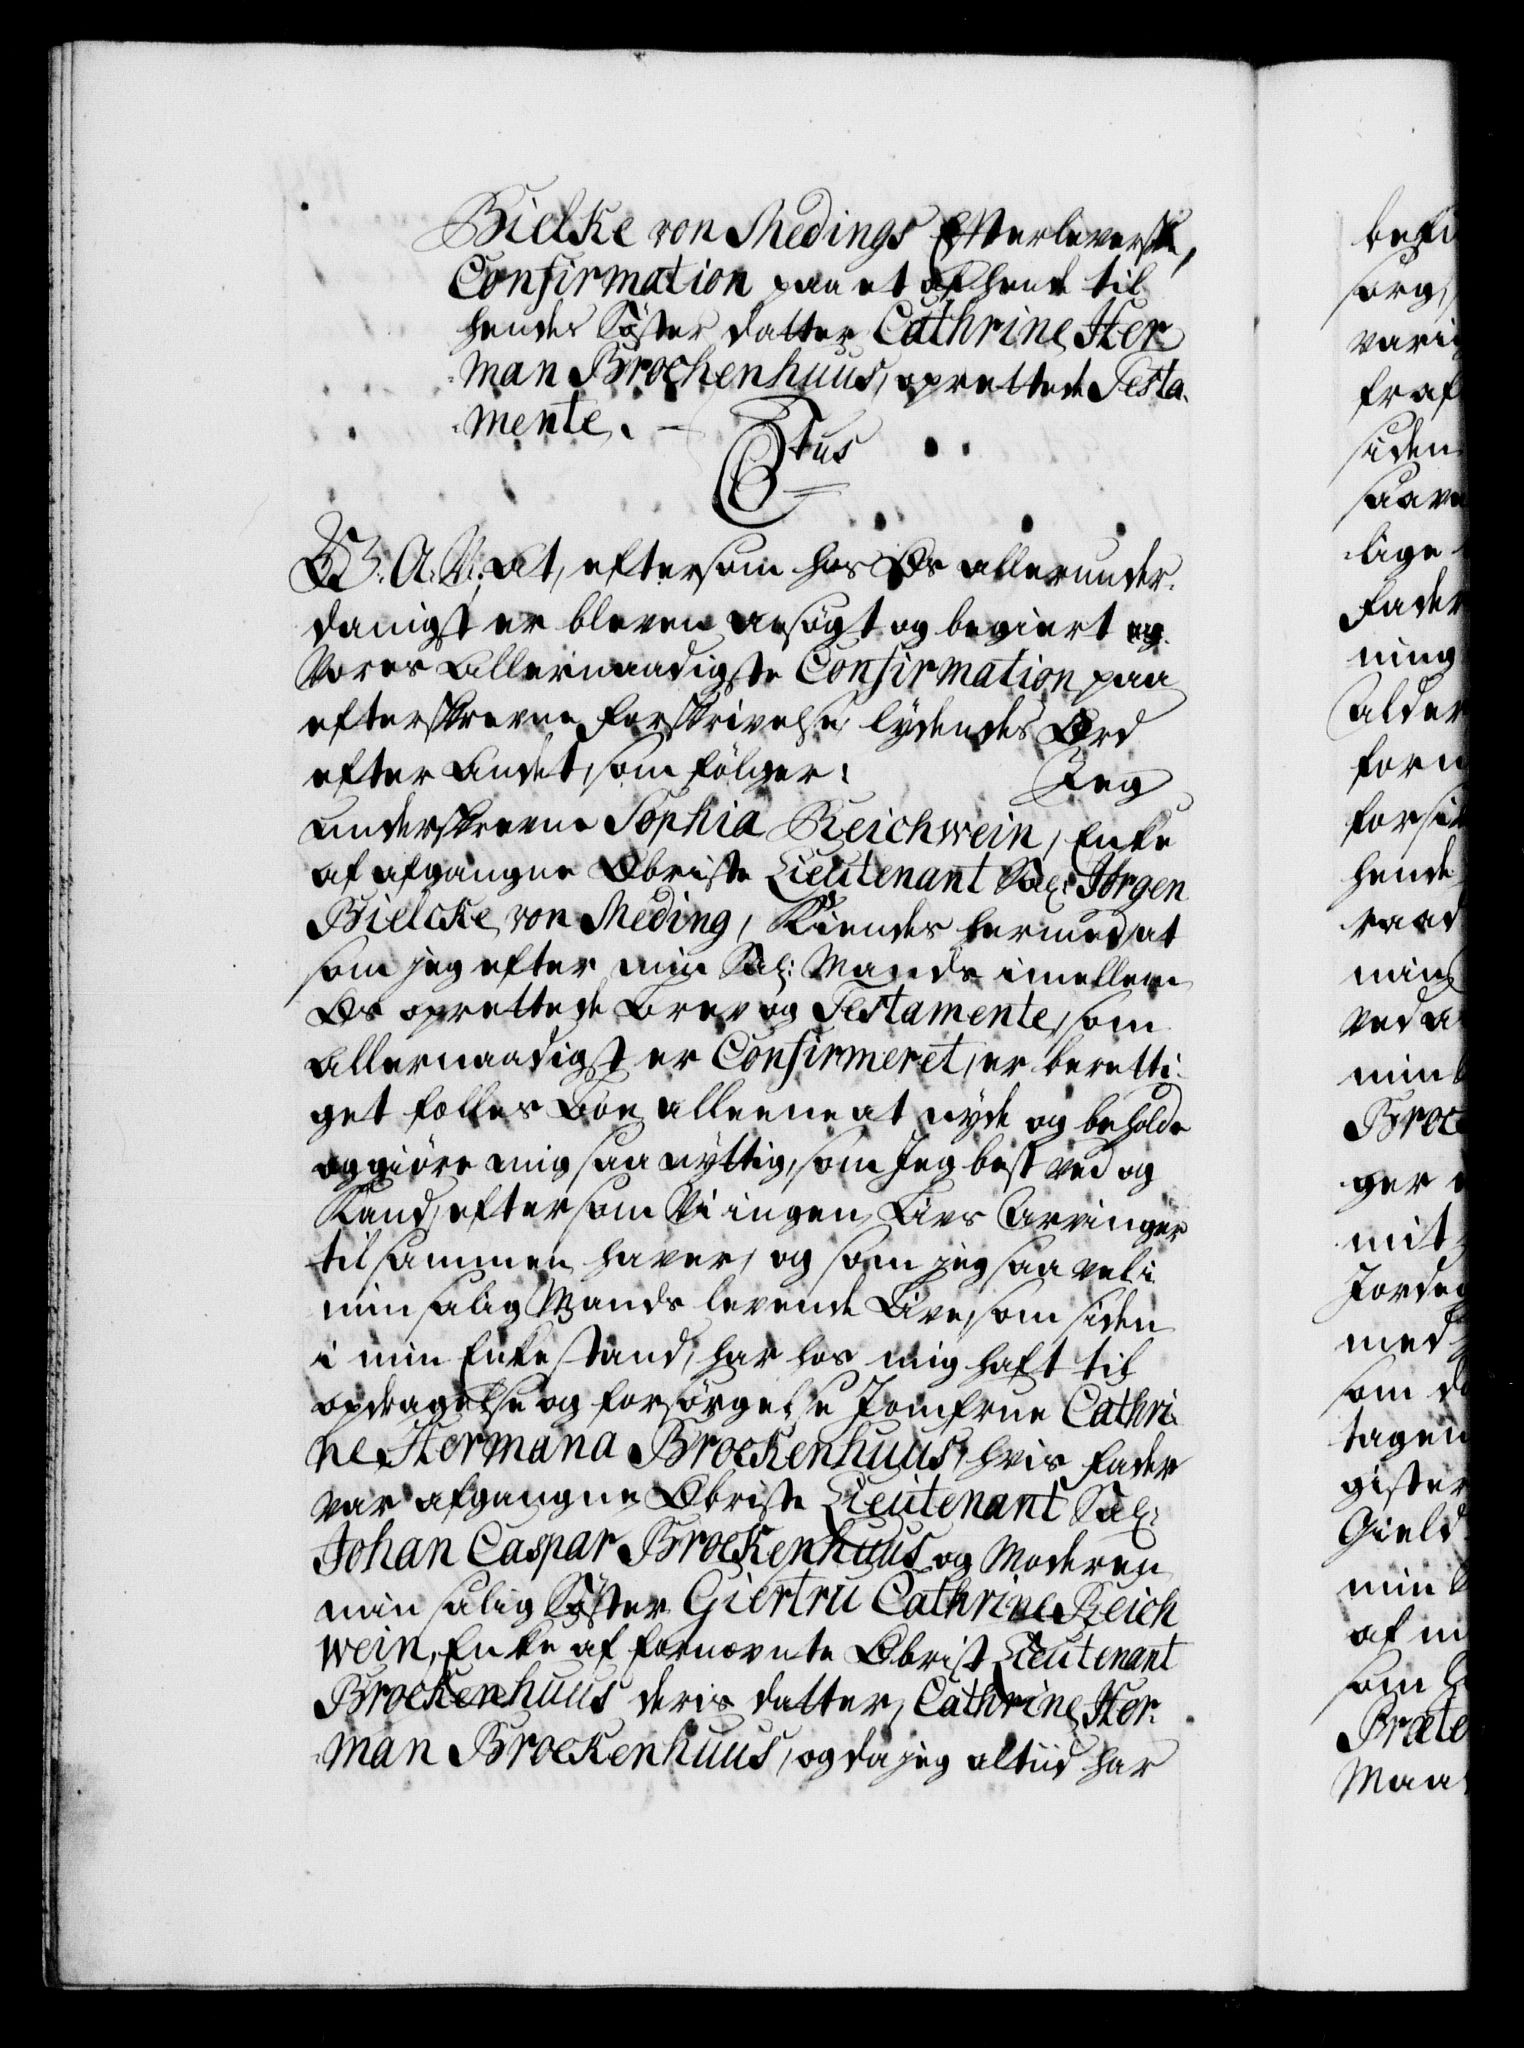 Bielke von Medings Efterleverske,
Confirmation paa et af hende til
hendes Søster datter Cathrine Her
man Brochenhuus, oprettede Testa-
mente.
Ctus
G. A. V. At, eftersom hos Os allerunder-
danigst er bleven ansøgt og begiert og
Vores allernaadigste Confirmation paa
efterskrevne forskrivelse lydendes Ord
efter andet, som følger: Jeg
underskrevne Sophia Reichwein, Enke
af afgangne Obriste Lieutenant Sal: Jørgen
Bielcke von Meding, Kiendes hermed at
som jeg efter min Sal: Mands imellem
Os oprettede brev og Testamente, som
allernaadigst er Confirmeret, er beretti-
get fælles Boe alleene at nyde og beholde
og giøre mig saa nyttig, som Jeg best ved og
Kand, eftersom Vi ingen Livs Arvinger
tilsammen haver, og som jeg saa vel i
min salig Mands levende Live, som siden
i min Enkestand, har hos mig haft til
opdragelse og forsørgelse Jomfrue Cathri-
ne Hermana Brockenhuus, hvis fader
var afgangne Obriste Lieutenant Sal:
Johan Caspar Brockenhuus og Moderen
min salig Søster Giertru Cathrine Reich
wein, Enke af fornevnte Obrist Lieutenant
Brockenhuus deris datter, Cathrine Her-
man Brockenhuus, og da jeg altiid har
sorg,
siden
lige
fader
ning
Alder
hende
raad
min
ved a
Broc
ger
mit
Jordeg
med
som
tagen
gister
Gield
min
af m
som
Præte
Maa